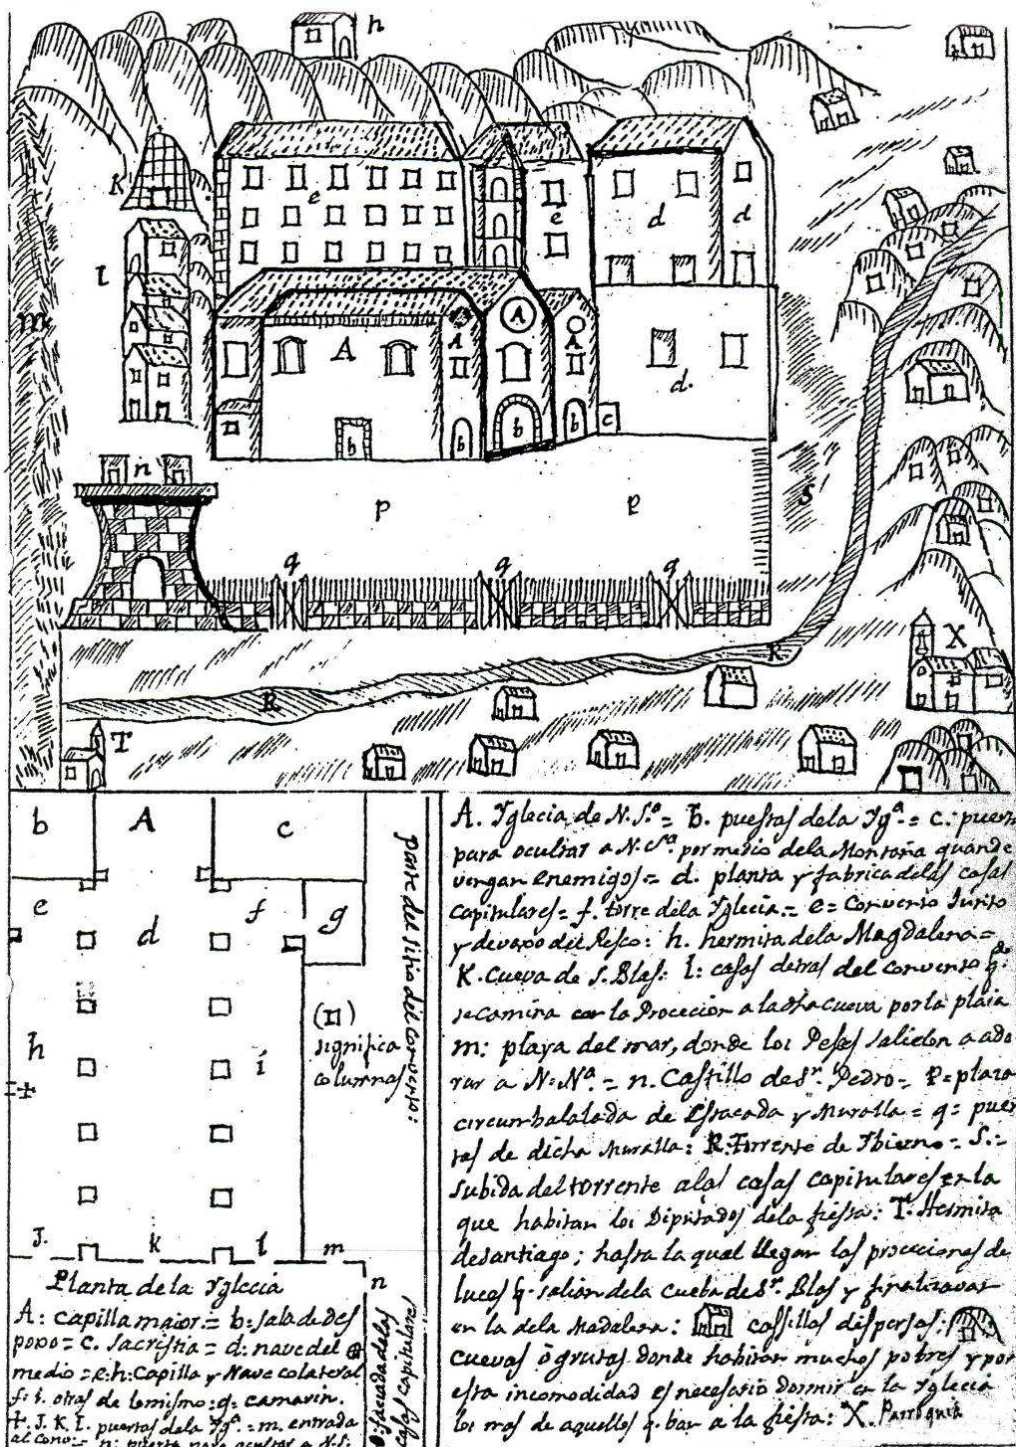 h
K
e
e
d
d
l
m
A
A
A
A
d.
b
b
b
b
c
n
P
P
S
q
q
q
R
R
X
T
b
A
c
e
d
f
g
h
i
J.
k
l
m
n
(□)
significa
columnas
parte del sitio del convento:
Planta de la Yglecia
A: capilla maior = b: sala de des
pojo = c. sacristia = d: nave del
medio = e: h: Capilla y Nave colateral
f: i. otras de lo mismo: g: camarin.
J. K. l. puertas dela Yg.ª = m. entrada
al conv.
o: facuada delas
casas capitulares
A. Yglecia de N. S.ª = b. puertas dela Yg.ª = c. puerta
para ocultar a N. S.ª por medio dela Montaña quando
vengan enemigos = d. planta y fabrica delas casas
capitulares = f. torre dela Yglecia = e = Convento Junto
y devaxo del Risco: h. hermita dela Magdalena =
K. Cueva de S. Blas: l: casas detras del convento p.r de
se camina con la Procecion a la dha cueva por la plaia
m: playa del mar, donde los Peses salieron a ado
rar a N. = n. Castillo de S.r Pedro = P = plaza
circumbalalada de Estacada y Muralla = q = puer
tas de dicha Muralla: R. Torrente de Ybierno = S. =
subida del torrente a las casas capitulares en la
que habitan los Diputados dela fiesta: T. Hermita
de santiago; hasta la qual llegan las prociones de
luces q. salian dela cueba de S.r Blas y finalizavan
en la dela Madalena: casillas dispersas:
cuevas ò grutas donde habitan muchos pobres y por
esta incomodidad es necesario dormir en la Yglecia
los mas de aquellos q. ban a la fiesta: X. Parroquia